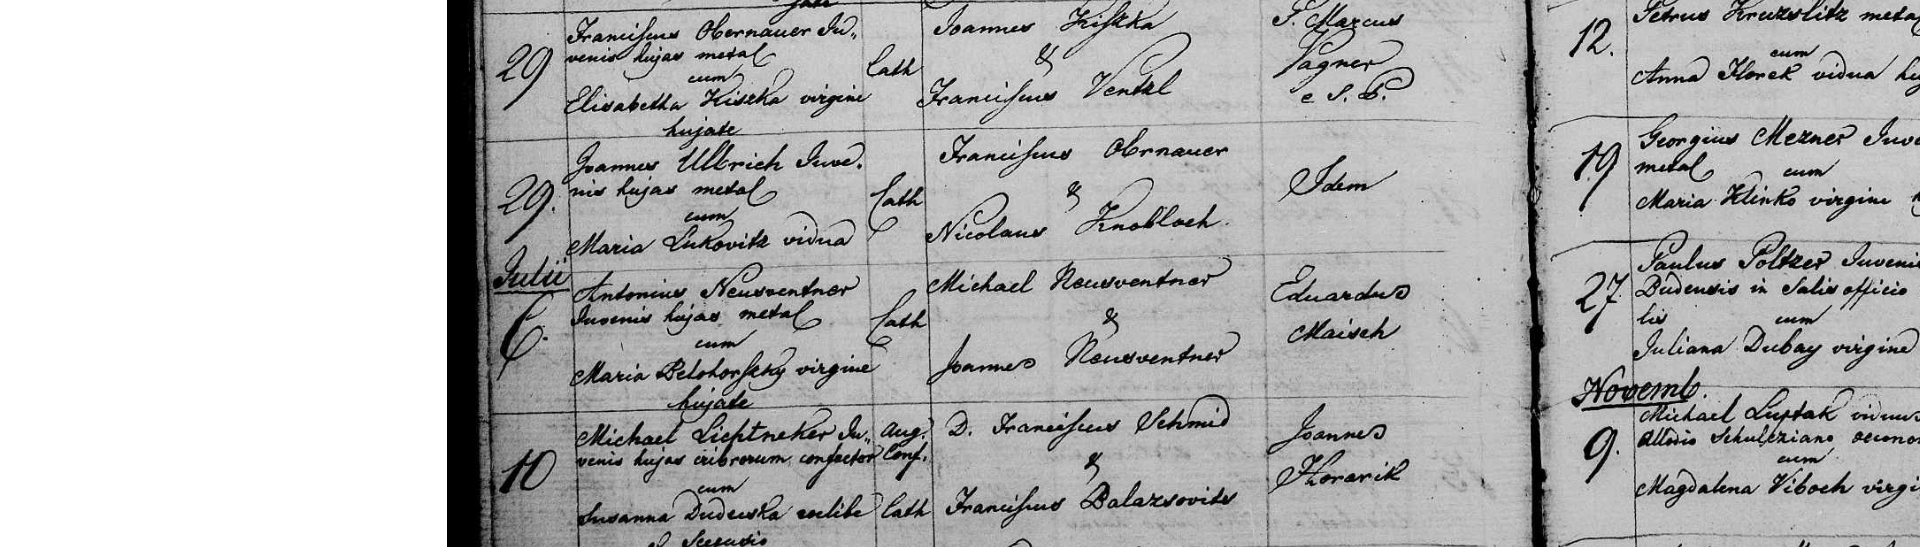 29
Franciscus Obernauer Ju„
venis hujas metal
cum
Elisabetha Kiszka virgine
hujate
Cath
Joannes Kiszka
&
Franciscus Ventzl
P. Marcus
Vagner
e S. P.
29.
Joannes Ullrich Juve.
nis hujas metal
cum
Maria Lukovitz vidua
Cath
Franciscus Obrnauer
&
Nicolaus Knobloch
Idem
Julii
6.
Antonius Neusventner
Juvenis hujas metal
cum
Maria Belohorszky virgine
hujate
Cath
Michael Neusventner
&
Joannes Neusventner
Eduardus
Maisch
10
Michael Lichtneker Ju„
venis hujas cribrorum confector
cum
Susanna Duduska coelibe
Aug.
Conf.
Cath
D. Franciscus Schmid
&
Franciscus Balazsovits
Joannes
Horarik
12.
Petrus
cum
Anna Florek vidua
19
Georgius Mezner Juve
metal cum
Maria Klinko virgine
27.
Paulus Poltzer Juveni
Budensis in Salis officio
lis cum
Juliana Dubay virgine
Novemb.
9.
Michael Luptak viduus
Allodio Schulcziano oecono
cum
Magdalena Viboch virgi